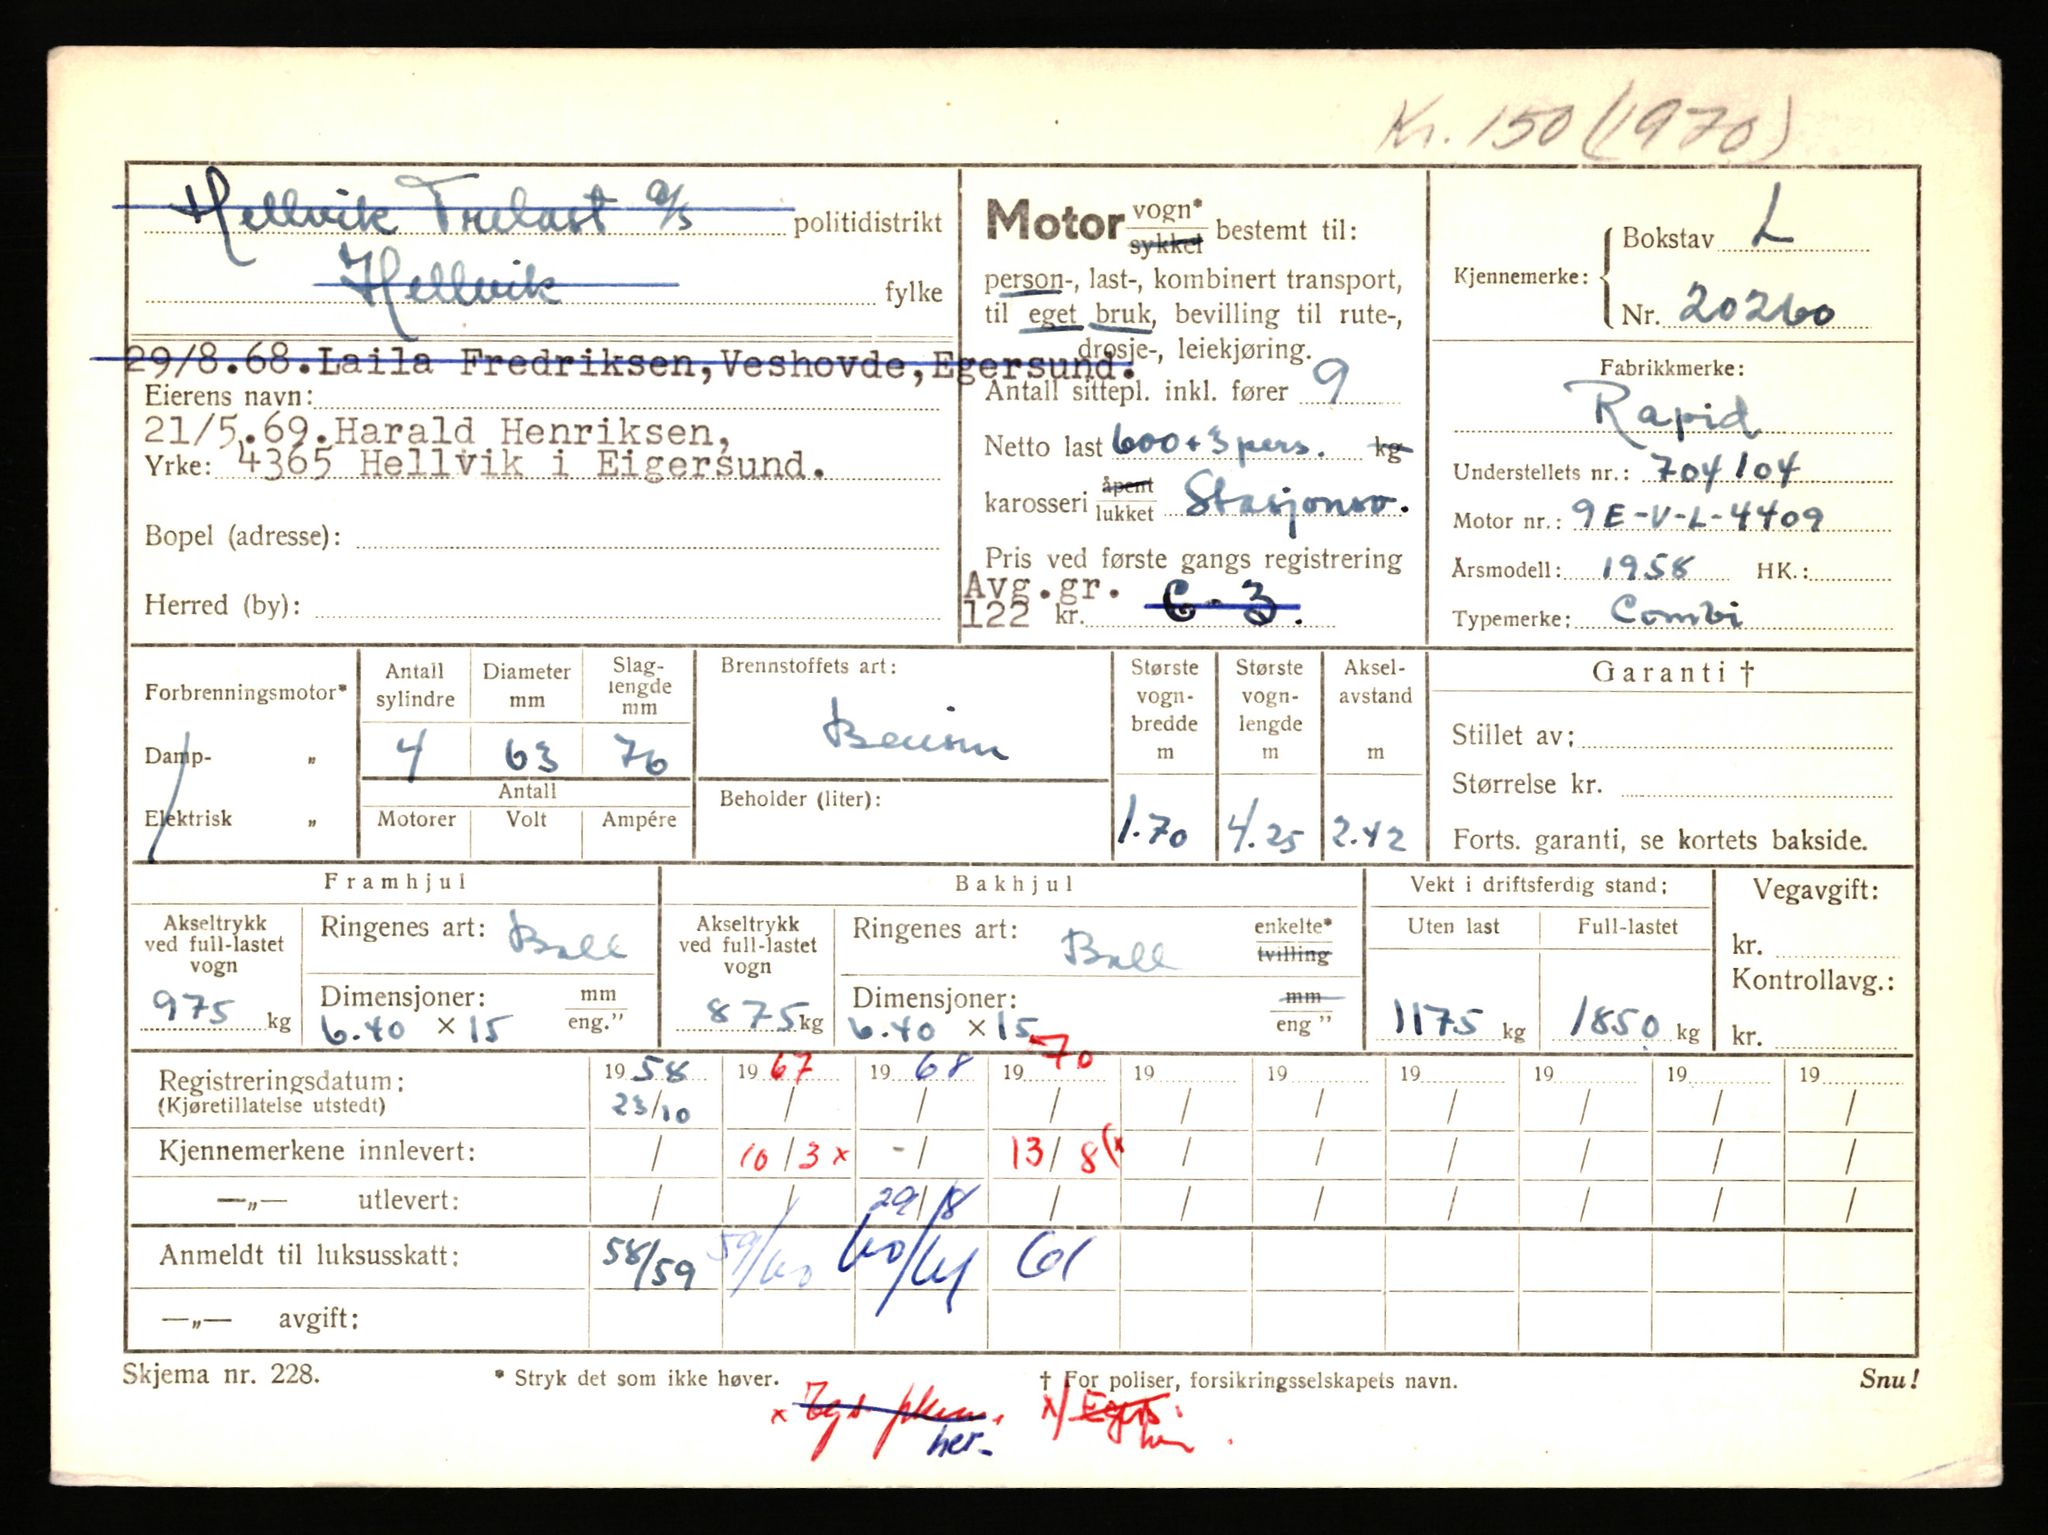 Kr. 150 (1970)
Hellvik Trelast a/s politidistrikt
Hellvik fylke
29/8.68. Laila Fredriksen, Veshovde, Egersund.
Eierens navn:
21/5.69. Harald Henriksen,
Yrke: 4365 Hellvik i Eigersund.
Bopel (adresse):
Herred (by):
Motor vogn* sykkel bestemt til:
person-, last-, kombinert transport,
til eget bruk, bevilling til rute-,
drosje-, leiekjøring.
Antall sittepl. inkl. fører 9
Netto last 600+3 pers. kg
karosseri åpent lukket Stasjonsv.
Pris ved første gangs registrering
Avg.gr.
122 kr. C-3.
Kjennemerke: Bokstav L
Nr. 20260
Fabrikkmerke:
Rapid
Understellets nr.: 704104
Motor nr.: 9E-V-L-4409
Årsmodell: 1958 HK.:
Typemerke: Combi
Forbrenningsmotor*
Damp- „
Elektrisk „
Antall sylindre Diameter mm Slag-lengde mm
4 63 76
Antall
Motorer Volt Ampére
Brennstoffets art:
Bensin
Beholder (liter):
Største vogn-bredde m Største vogn-lengde m Aksel-avstand m
1.70 4.25 2.42
Garanti †
Stillet av:
Størrelse kr.
Forts. garanti, se kortets bakside.
Framhjul
Akseltrykk ved full-lastet vogn
975 kg
Ringenes art: Ball
Dimensjoner: mm eng."
6.40 × 15
Bakhjul
Akseltrykk ved full-lastet vogn
875 kg
Ringenes art: Ball enkelte* tvilling
Dimensjoner: mm eng "
6.40 × 15
Vekt i driftsferdig stand:
Uten last Full-lastet
1175 kg 1850 kg
Vegavgift:
kr.
Kontrollavg.:
kr.
Registreringsdatum: 19 58 19 67 19 68 19 70 19 19 19 19 19 19
(Kjøretillatelse utstedt) 23/10 / / / / / / / / /
Kjennemerkene innlevert: / 10/3 x -/ 13/8 (x / / / / / /
—„— utlevert: / / 29/8 / / / / / / /
Anmeldt til luksusskatt: 58/59 59/60 60/61 61
—„— avgift:
Skjema nr. 228. * Stryk det som ikke høver. † For poliser, forsikringsselskapets navn. Snu!
her-